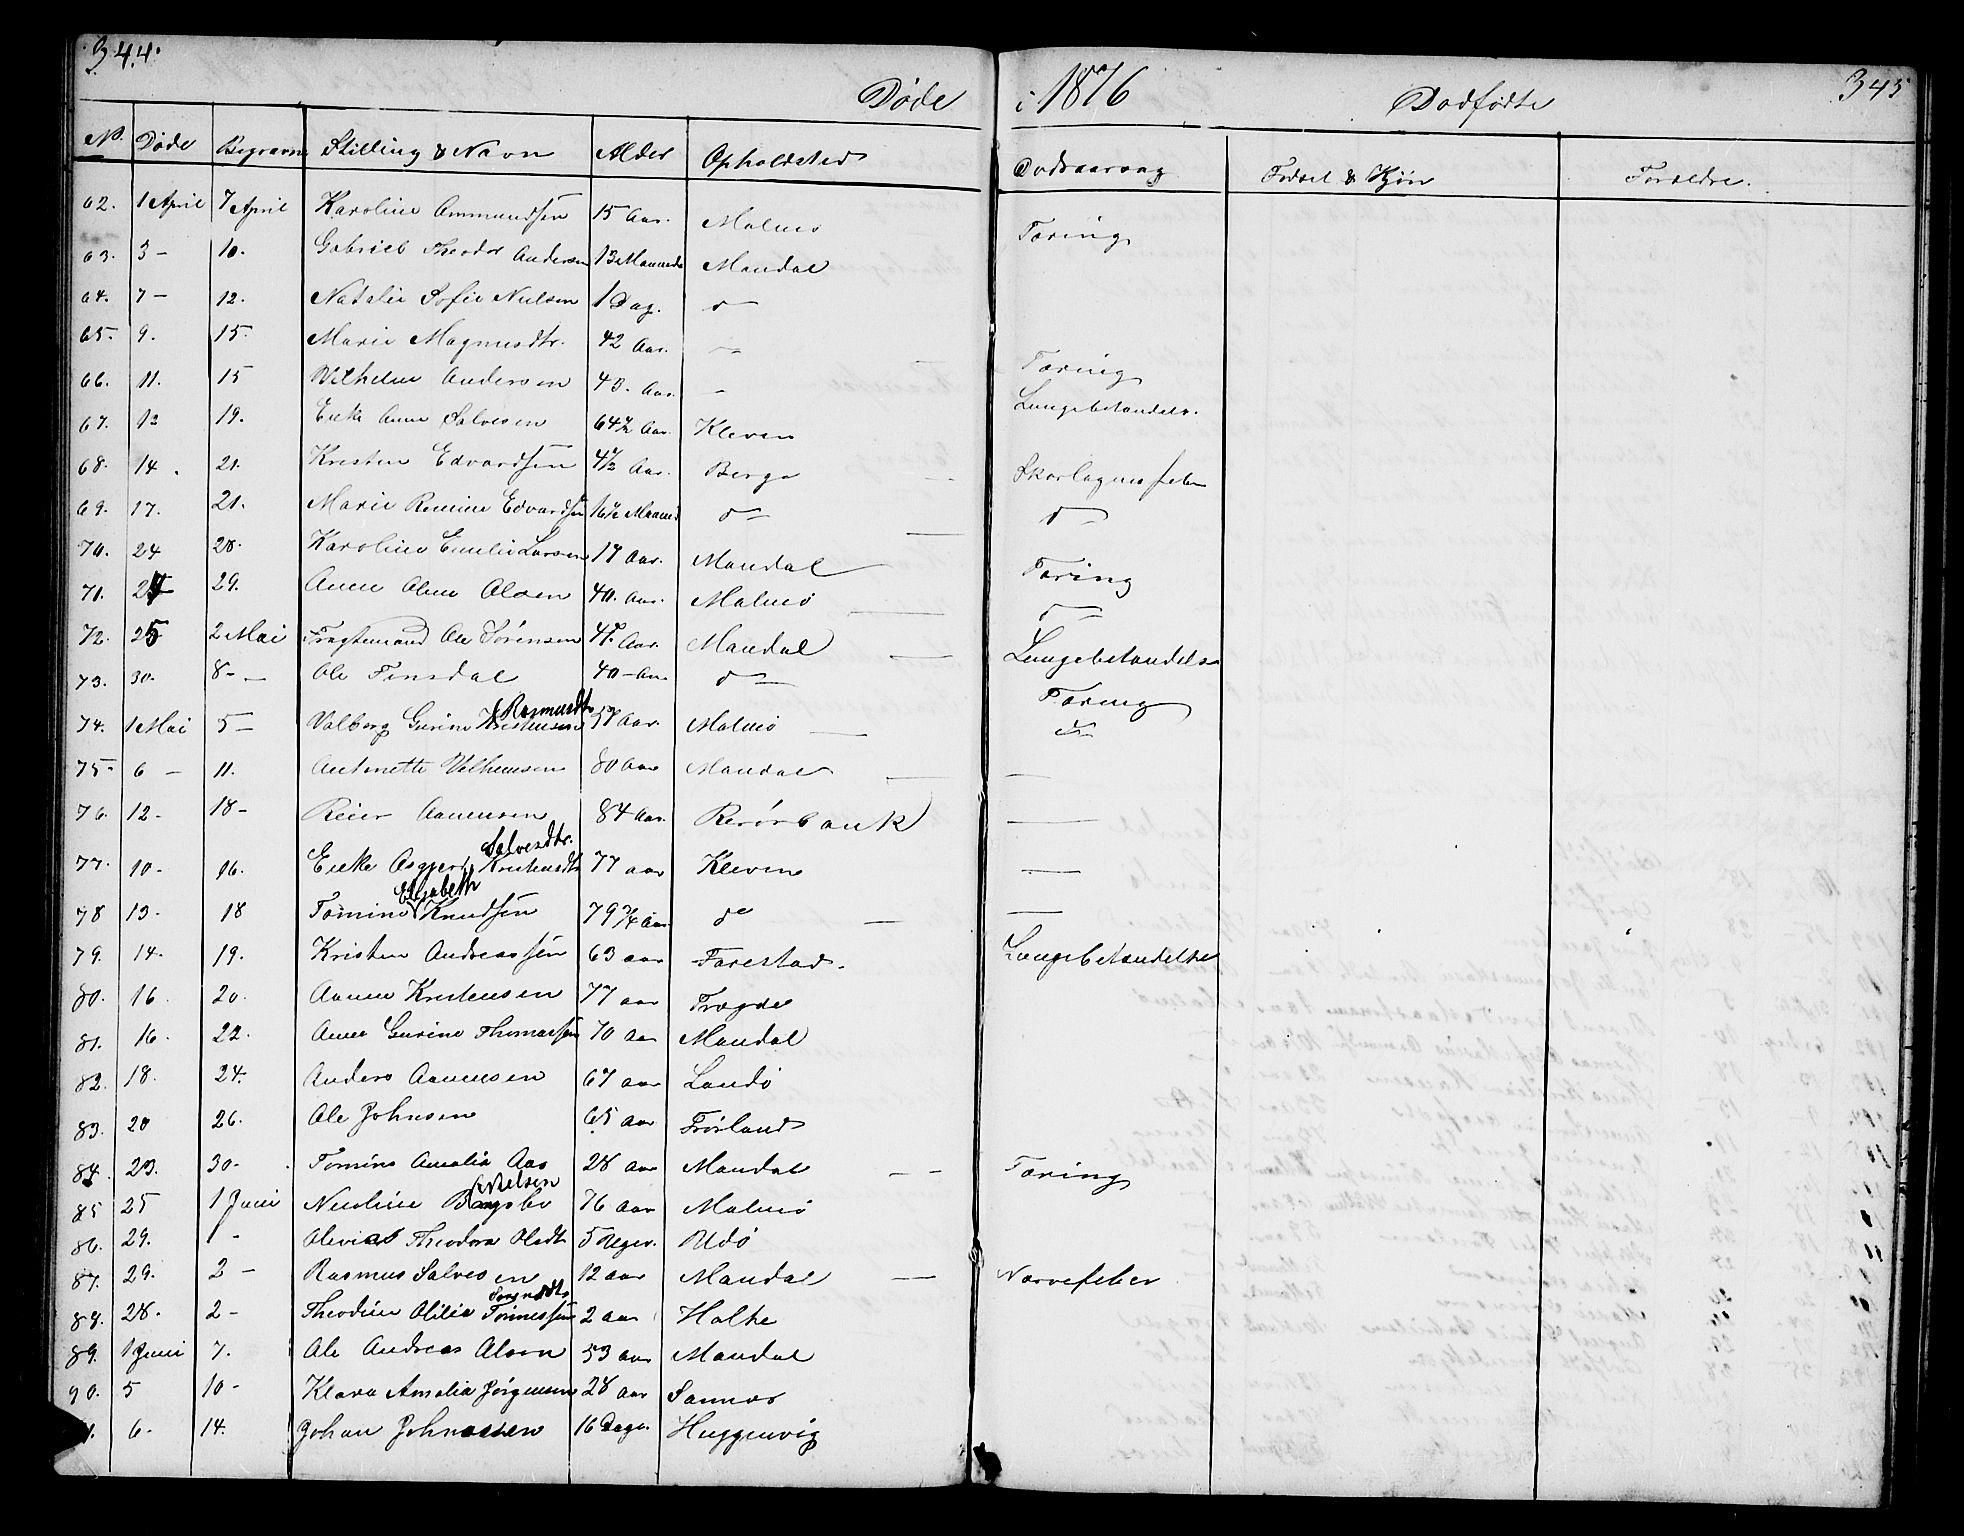 344.
Døde i 1876 Dødfødte 345
No. Døde Begravne Stilling & Navn Alder Opholdsted Dødsaarsag Fødsel & Kjøn Forældre.
62. 1 April 7 April Karoline Ammundsen 15 Aar. Malmø Tæring
63. 3 - 10. Gabriel Theodor Andersen 13 Maaneder Mandal
64. 7 - 12. Natalie Sofie Nielsen 1 Dag. d—
65. 9. 15. Marie Magnusdtr. 42 Aar. — Tæring
66. 11. 15 Vilhelm Andersen 43. Aar. — Lungebetændels.
67. 12 19. Enke Anne Salvesen 64½ Aar. Kleven
68. 14. 21. Kristen Edvardsen 4½ Aar. Berge Skarlagensfeber
69. 17. 21. Marie Edvardsen 16½ Maaned d— d—
70. 24 28. Karoline Emilie Larsen 17 Aar. Mandal Tæring
71. 24 29. Anne Olene Olsen 40. Aar. Malmø d—
72. 25 2 Mai Fragtemand Ole Sørensen 47. Aar. Mandal Lungebetændelse
73. 30. 8 - — Ole Finsdal 40 - Aar d— Tæring
Rasmusdtr
74. 1 Mai 5 — Valborg Gurine Kristensen 57 Aar. Malmø d—
75 - 6 — 11. Antonette Velhemsen 80 Aar Mandal —
76. 12 - 18 - Reier Aanensen 84 Aar. Rerørbank —
Salvesdtr.
77. 10 - 16. Enke Asgjerd Kristensdtr 77 aar Kleven —
Elisabeth
78 13. 18 Tomine Knudsen 79¾ Aar d° —
79. 14. 19. Kristen Andreassen 63 aar Farestad. Lungebetændelse
80. 16 20. Aanen Kristensen 77 aar Trægde
81. 16. 22. Anne Gurine Thomassen 70 aar Mandal
82. 18. 24. Anders Aanensen 67 aar Landø
83. 20 26. Ole Johnsen 65 aar Frøiland
84. 23. 30 - Tomine Amalia Aas 28 aar Mandal — — Tæring
Nielsen
85 25 1 Juni Nicoline Bangsbo 76 aar Malmø
86. 29. 1 - Theodora 5 Uger. Udø
87. 29. 2 — Rasmus Salvesen 12 aar Mandal — Nervefeber
88. 28. 2 - Theodine Otilie Tønnessen 2 aar Holte
89. 1 Juni 7. Ole Andreas Olsen 53 aar Mandal
90. 5 10 - Klara Amalia Jørgensen 28 aar Sannes
6. 14. Johan Johnassen 16 Dage. Huggenvig